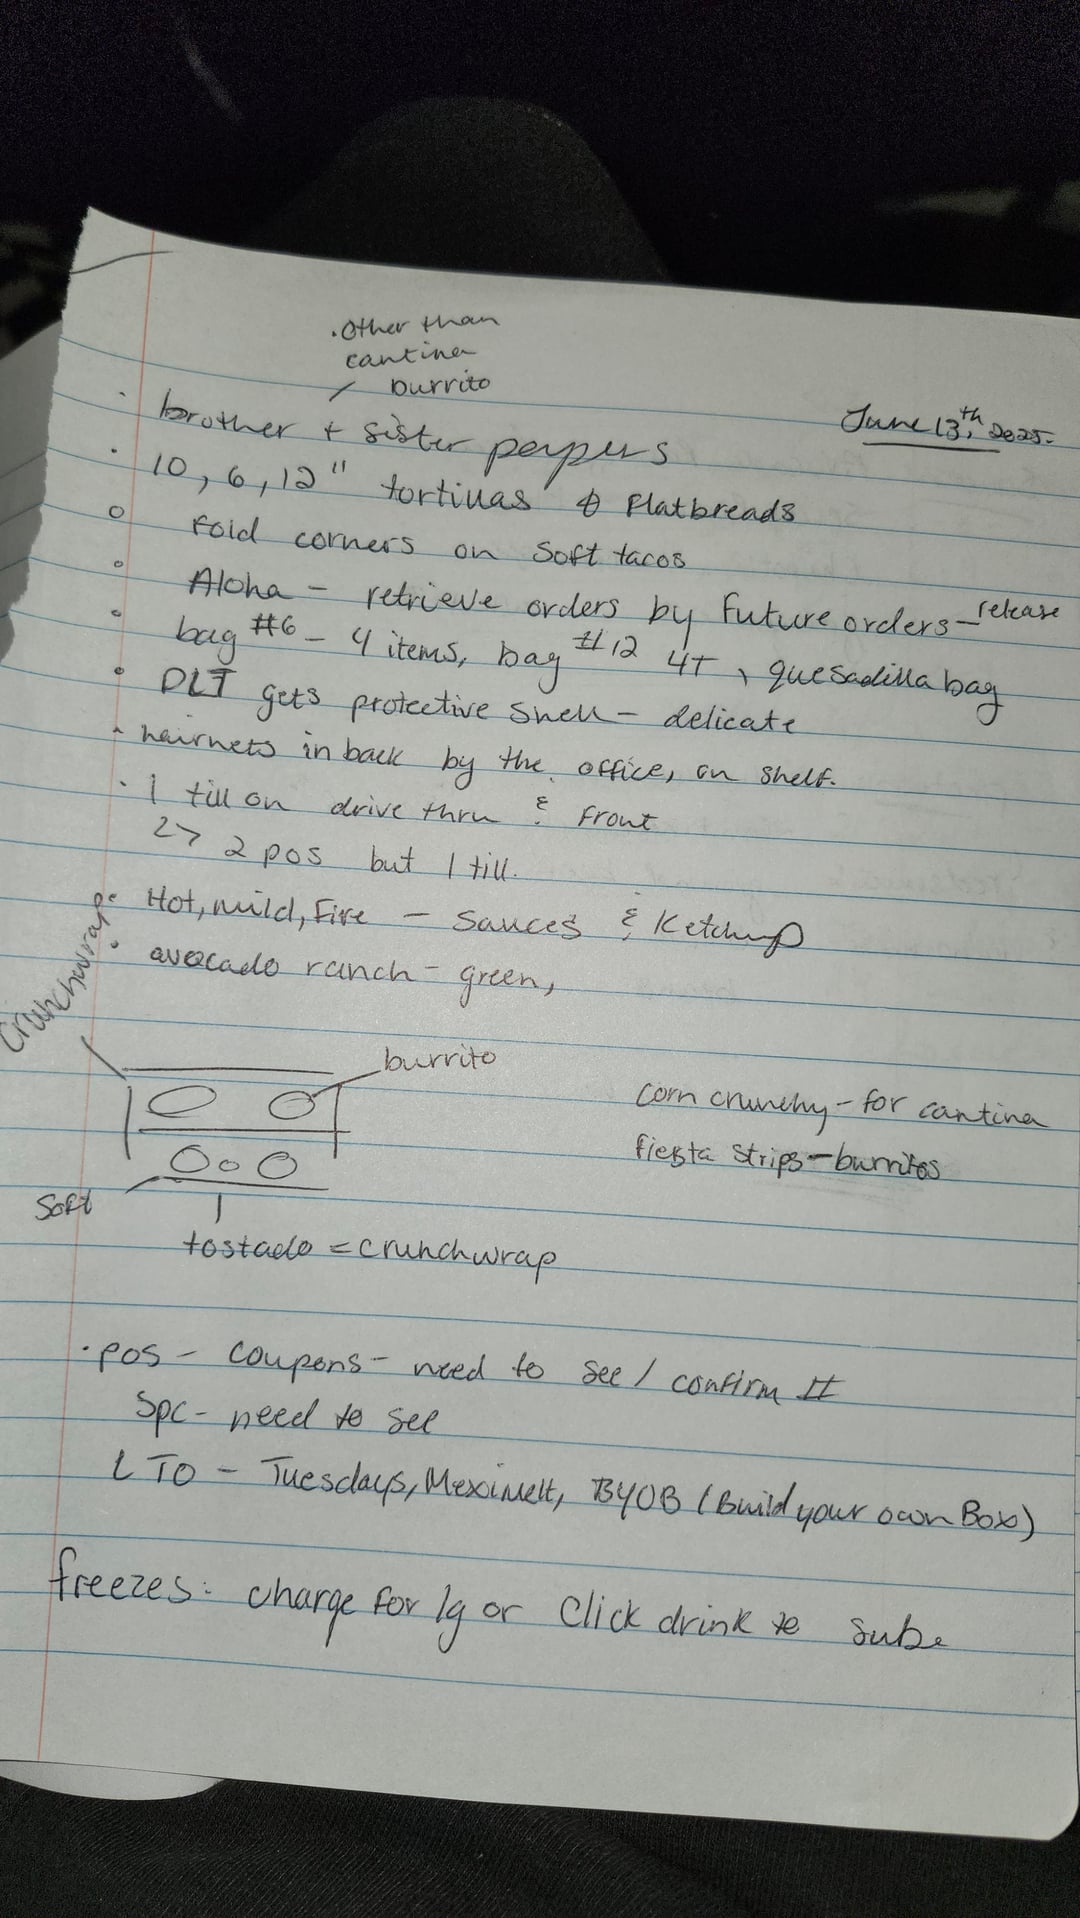 .Other than
cantina
burrito
June 13th, 2025.
· brother + sister
· 10, 6, 12" tortillas & Flatbreads
o Fold corners on Soft tacos
o Aloha - retrieve orders by Future orders - release
· bag #6 - 4 items, bag #12 4T, quesadilla bag
· DLT gets protective Shell - delicate
· hairnets in back by the office, on shelf.
· 1 till on drive thru & Front
2 pos but 1 till.
· Hot, mild, Fire - Sauces & Ketchup
· avocado ranch - green,
Crunchwrap
burrito
Corn crunchy - for cantina
fiesta Strips - burritos
Soft
tostado = crunchwrap
· pos - coupons - need to see / confirm It
Spc - need to see
LTO - Tuesdays, Meximelt, BYOB (Build your own Box)
freezes: charge for lg or Click drink to